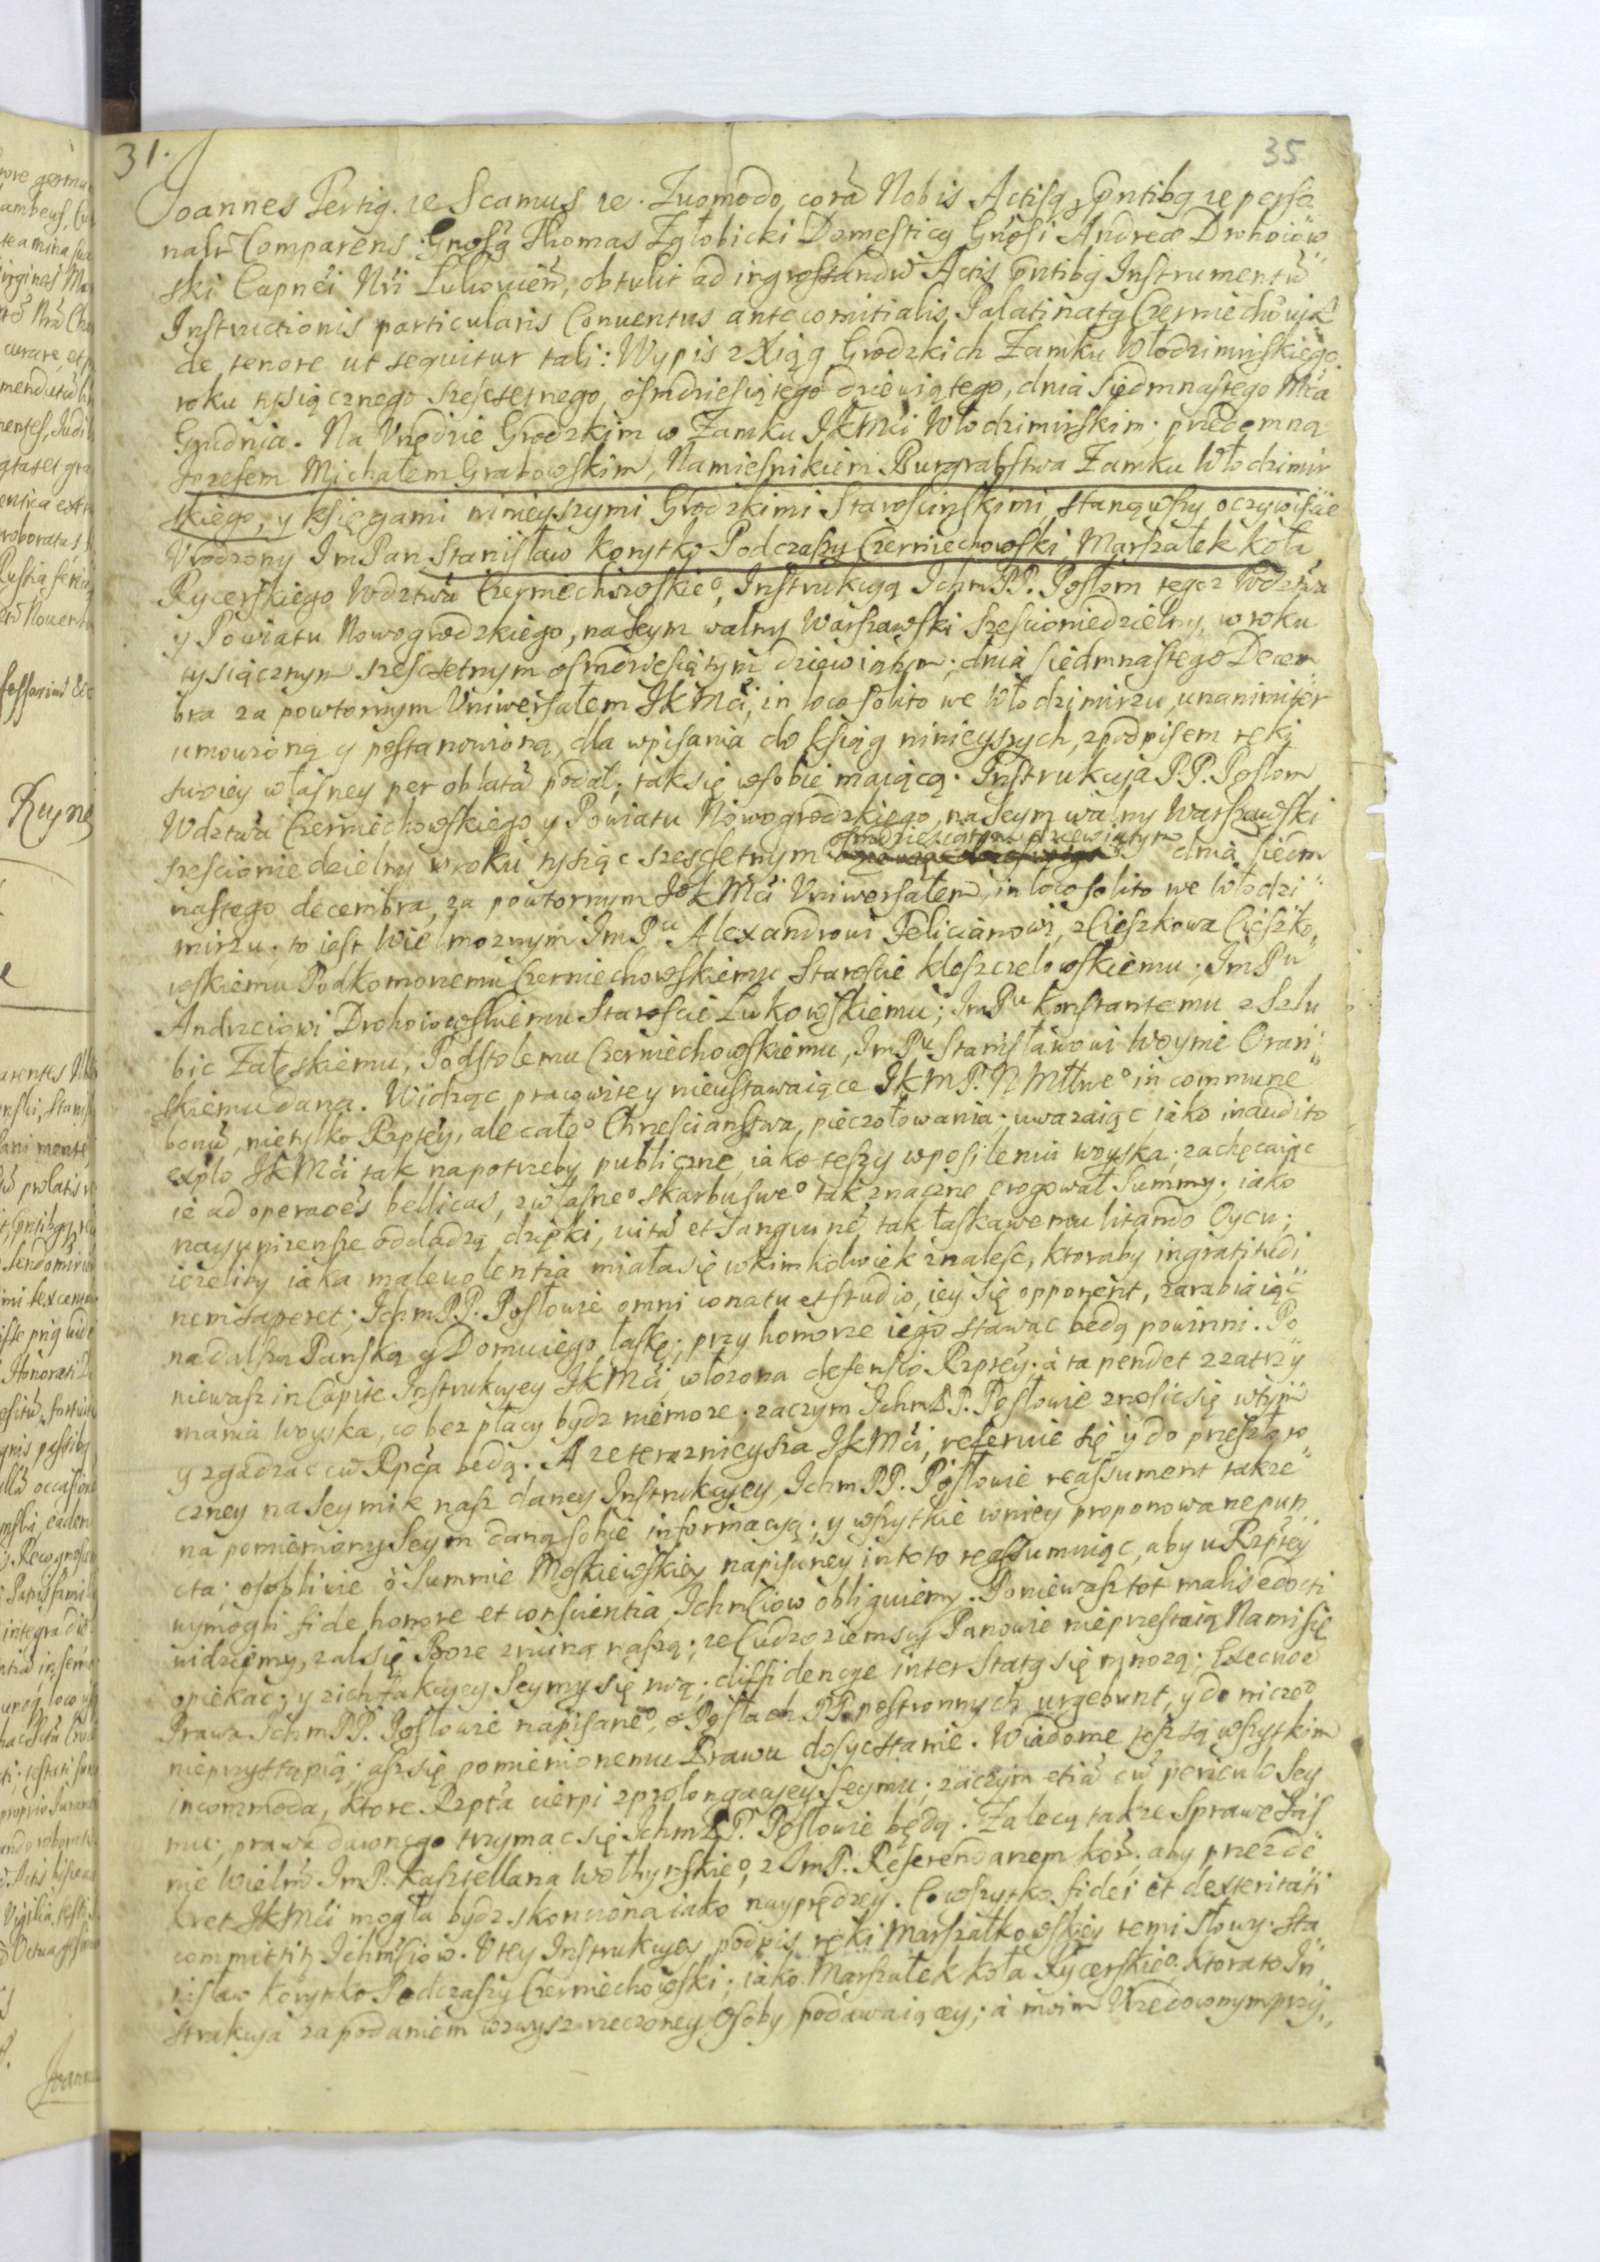 31.
35
Joannes Tertiq. re Scamus re. Quomodo cora Nobis Actisq pntibq re perso
nalr Comparens Gnosq Thomas Zgłobicki Domesticq Gnosi Andreæ Drohoiow
ski Capnei Nri Lukovien, obtulit ad ingrossandũ Actis pntibq Instrumentũ
Instructionis particularis Conventus antecomitialis Palatinatq Czerniechov
de tenore ut sequitur tali: Wypis z Xiąg Grodzkich Zamku Włodzimirskiego
roku tysiącznego szescsetnego, osmdziesiątego dziewiątego, dnia siedmnastego Mca
Grudnia. Na Vrzędzie Grodzkim w Zamku JKMci Włodzimirskim; przedemną
Jozefem Michałem Grabowskim, Namiesnikiem Burgrabstwa Zamku Włodzimir
skiego, y księgami ninieyszymi Grodzkimi Staroscinskimi, stanąwszy oczywiscie
Vrodzony JmPan Stanisław Korytko Podczaszy Czerniechowski Marszałek Koła
Rycerskiego Wdztwa Czerniechowskie⁰, Instrukcyą IchmPP. Posłom tegoz Wdztwa
y Powiatu Nowogrodzkiego, na Seym walny Warszawski szescioniedzielny, w roku
tysiącznym szescsetnym osmdziesiątym dziewiątym; dnia siedmnastego Decem
bra za powtornym Vniwersałem JKMci, in loco solito we Włodzimirzu, unanimiter
umowioną y postanowioną, dla wpisania do ksiąg ninieyszych, z podpisem ręki
swoiey własney per oblatã podał; tak się w sobie maiącą. Instrukcyia PP. Posłom
Wdztwa Czerniechowskiego y Powiatu Nowogrodzkiego, na Seym walny Warszawski
szescioniedzielny w roku tysiąc szescsetnym osmdziesiątym dziewiątym dnia siedm
nastego decembra, za powtornym JoKMci Vniwersałem, in loco solito we Włodzi
mirzu. to iest Wielmoznym JmPu Alexandrowi Felicianowi, z Cieszkowa Cieszko
wskiemu Podkomorzemu Czerniechowskiemu Staroscie kleszczelowskiemu; JmPu
Andrzeiowi Drohoiowskiemu Staroscie Łukowskiemu; JmPu Konstantemu z Szlu
bic Załęskiemu, Podstolemu Czerniechowskiemu, JmPu Stanisławowi Woynie Oran
skiemu dana. Widząc pracowite y nieustawaiące JKmP. N Młłwe⁰ in commune
bonũ, nietylko Rzptey, ale całe⁰ Chrzescianstwa, pieczołowania; uwazaiąc iako inaudito
explo JKMci tak na potrzeby publiczne, iako teszy w posileniu woyska; zachęcaiąc
ie ad operaoes bellicas, z własne⁰ skarbu swe⁰ tak znaczne erogował Summy; iako
nayunizensze oddadzą dzięki, vitã et sanguinẽ tak łaskawemu litando Oycu;
iezeliby iaka malevolentia miała się w kimkolwiek znalesc, ktoraby ingratitudi
nem saperet; IchmPP. Posłowie omni conatu et studio, iey się opponent, zarabiaiąc
na dalszą Panską y Domu iego łaskę; przy honorze iego stawac będą powinni. Po
niewasz in Capite Instrukcyey JKMci włozona defensio Rzptey; a ta pendet z zatrzy
mania woyska, co bez płacy bydz niemoze; zaczym IchmPP. Posłowie znosic się w tym
y zgadzac cũ Rpca będą. A ze teraznieysza JKMci, referuie się y do przeszłoro
czney na Seymik nasz daney Instrukcyey, IchmPP. Posłowie reassument takze
na pomieniony Seym daną sobie informacyą; y wszytkie w niey proponowane pun
cta; osobliwie o Summie Moskiewskiey napisaney in toto reassumuiąc, aby u Rzptey
wymogli fide honore et conscientia Ichmsciow obliguiemy. Poniewasz tot malis edocti
widziemy, zal się Boze z ruiną naszą; ze Cudzoziemscy Panowie nieprzestaią Nami się
opiekac; y z ich fakcyey Seymy się rwą; diffidencye inter Statq się mnozą; Execuoe
Prawa IchmPP. Posłowie napisane⁰, o Posłach PP. postronnych urgebunt, y do nicze⁰
nieprzystąpią; asz się pomienionemu Prawu dosyc stanie. Wiadome tesz są wszytkim
incommoda, ktore Rzpta cierpi z prolongacyey Seymu; zaczym etiã cũ periculo Sey
mu, prawa dawnego trzymac się IchmPP. Posłowie będą. Zalecą takze Sprawę Jas
nie Wielm JmP. Kasztellana Wołhynskie⁰, z JmP. Referendarzem kor; aby przez de
kret JKMci mogła bydz skonczona iako nayprędzey. Co wszytko fidei et dexteritati
committitq Ichmsciow. V tey Instrukcyey podpis ręki Marszałkowskiey temi słowy. Sta
nisław Korytko Podczaszy Czerniechowski; iako Marszałek koła Rycerskie⁰. ktora to In
strukcyia za podaniem wzwysz rzeczoney Osoby podawaiącey; a moim Vrzędownym przy